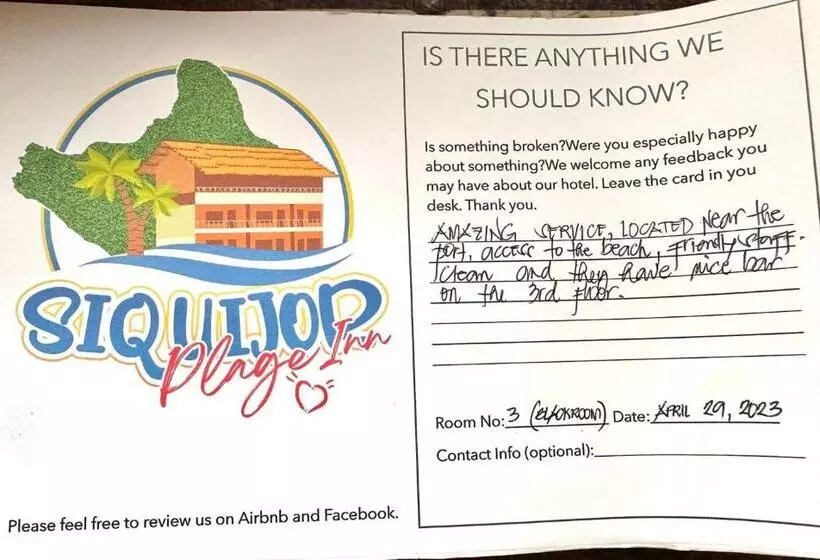 SIQUIJOR
Plage Inn
Please feel free to review us on Airbnb and Facebook.
IS THERE ANYTHING WE
SHOULD KNOW?
Is something broken?Were you especially happy
about something?We welcome any feedback you
may have about our hotel. Leave the card in you
desk. Thank you.
AMAZING SERVICE, LOCATED Near the
port, access to the beach, friendly staff.
Clean and they have nice bar
on the 3rd floor.
Room No: 3 (BLACKROOM) Date: APRIL 29, 2023
Contact Info (optional):